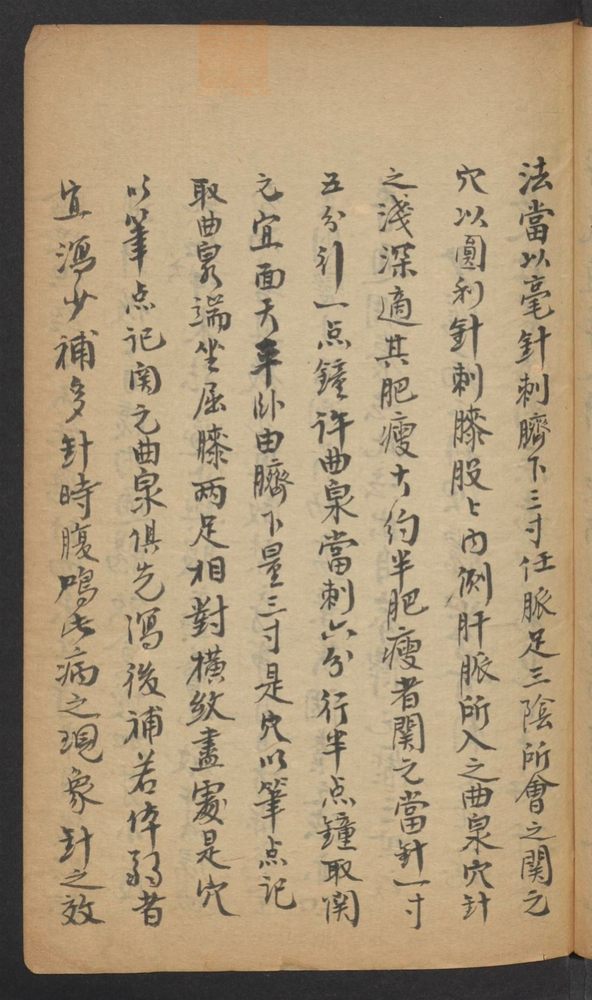 法當以毫針刺臍下三寸任脈足三陰所會之関元
穴以圓利針刺膝股上内側肝脈所入之曲泉穴針
之淺深適其肥瘦大約半肥瘦者関元當針一寸
五分引一点鐘许曲泉當刺六分行半点鐘取関
元宜面天平卧由臍下量三寸是穴以筆点記
取曲泉端坐屈膝两足相對橫紋盡處是穴
以筆点記関元曲泉俱先瀉後補若体弱者
宜瀉少補多針時腹鳴此病之現象針之效